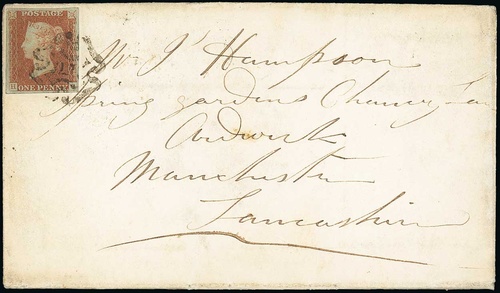 POSTAGE
ONE PENNY
Mr J Hampson
Spring gardens Chancery Lane
Ardwick
Manchester
Lancashire